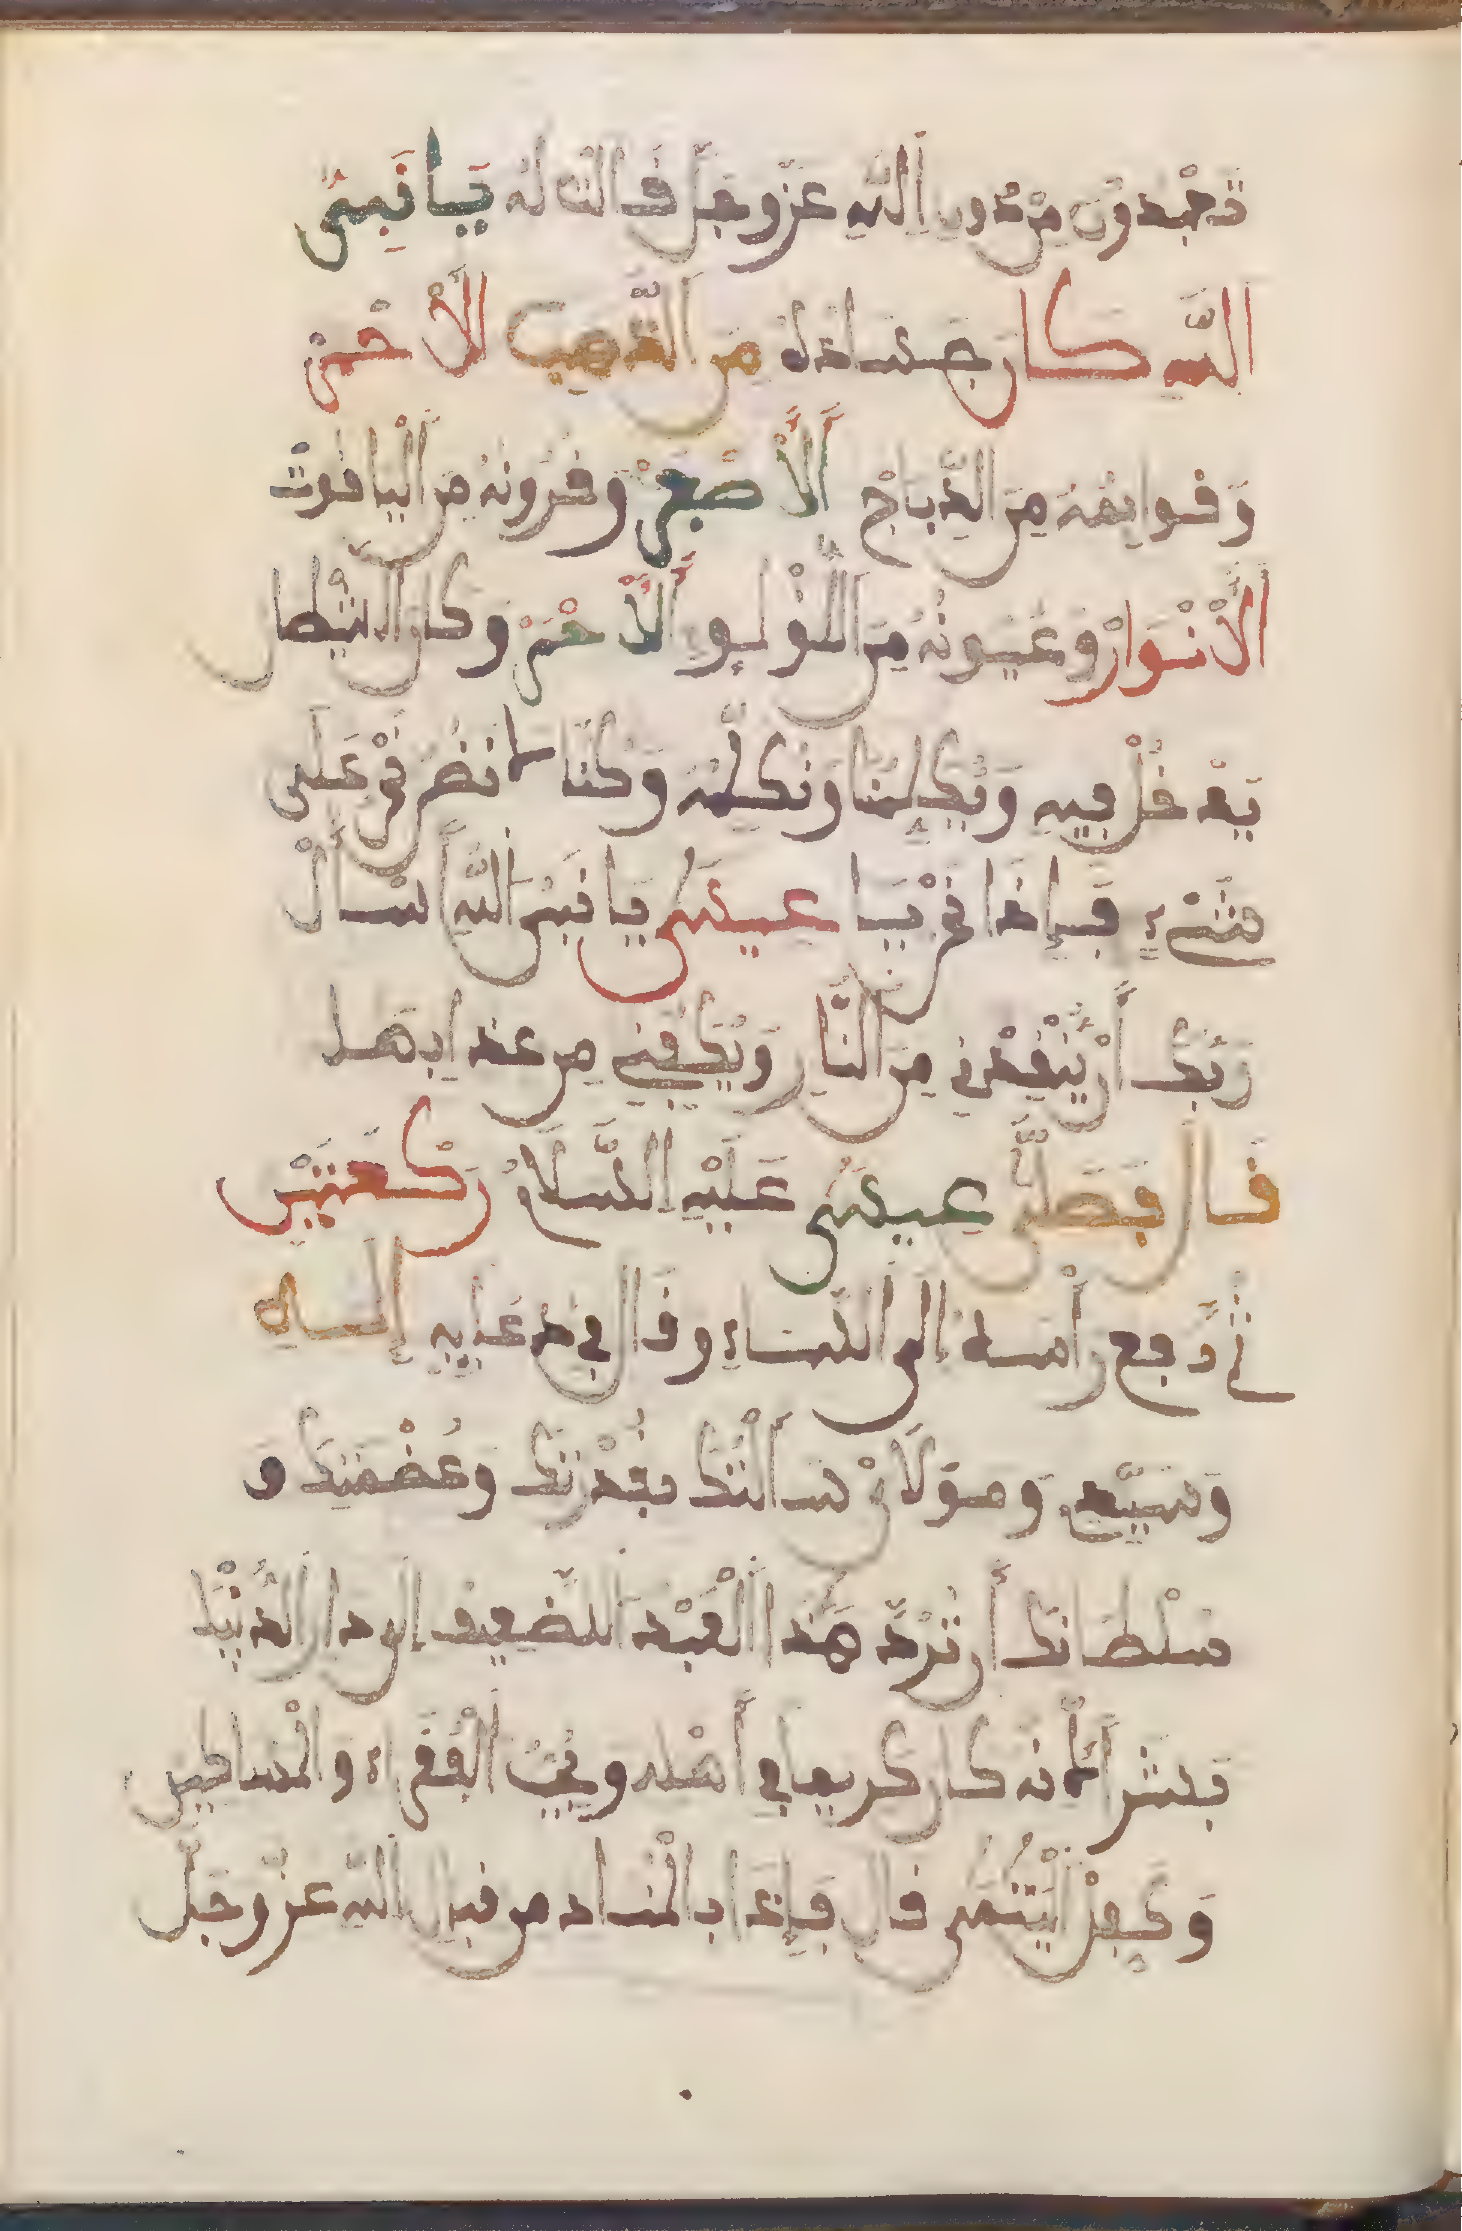 تعبدون من دون الله عز وجل فالت له يا نبى
الله كان جسده من الذهب الأحمر
وفوايمه من الديباج الأصفر وفرونه من اليافوت
الأنوار وعيونه من اللولو الأحمر وكان الشيطان
يدخل فيه ويكلمنا ونكلمه وكنا لا نفدر على
شيء فإذا فريا عيسى يا نبى الله اسأل
ربك أن ينفذني من النار ويكفني من عذابها
فال فصلى عيسى عليه السلام ركعتين
ثم رفع رأسه الى السماء وفال في دعايه إلهي
وسيدي ومولاي سألتك بفدرتك وعظمتك و
سلطانك أن ترد هذا العبد الضعيف الى دار الدنيا
فبشر لأنه كان كريما في أهله ويحب الففراء والمساكين
وكفل اليتمى فال فإذا بالمناد من فبل الله عز وجل